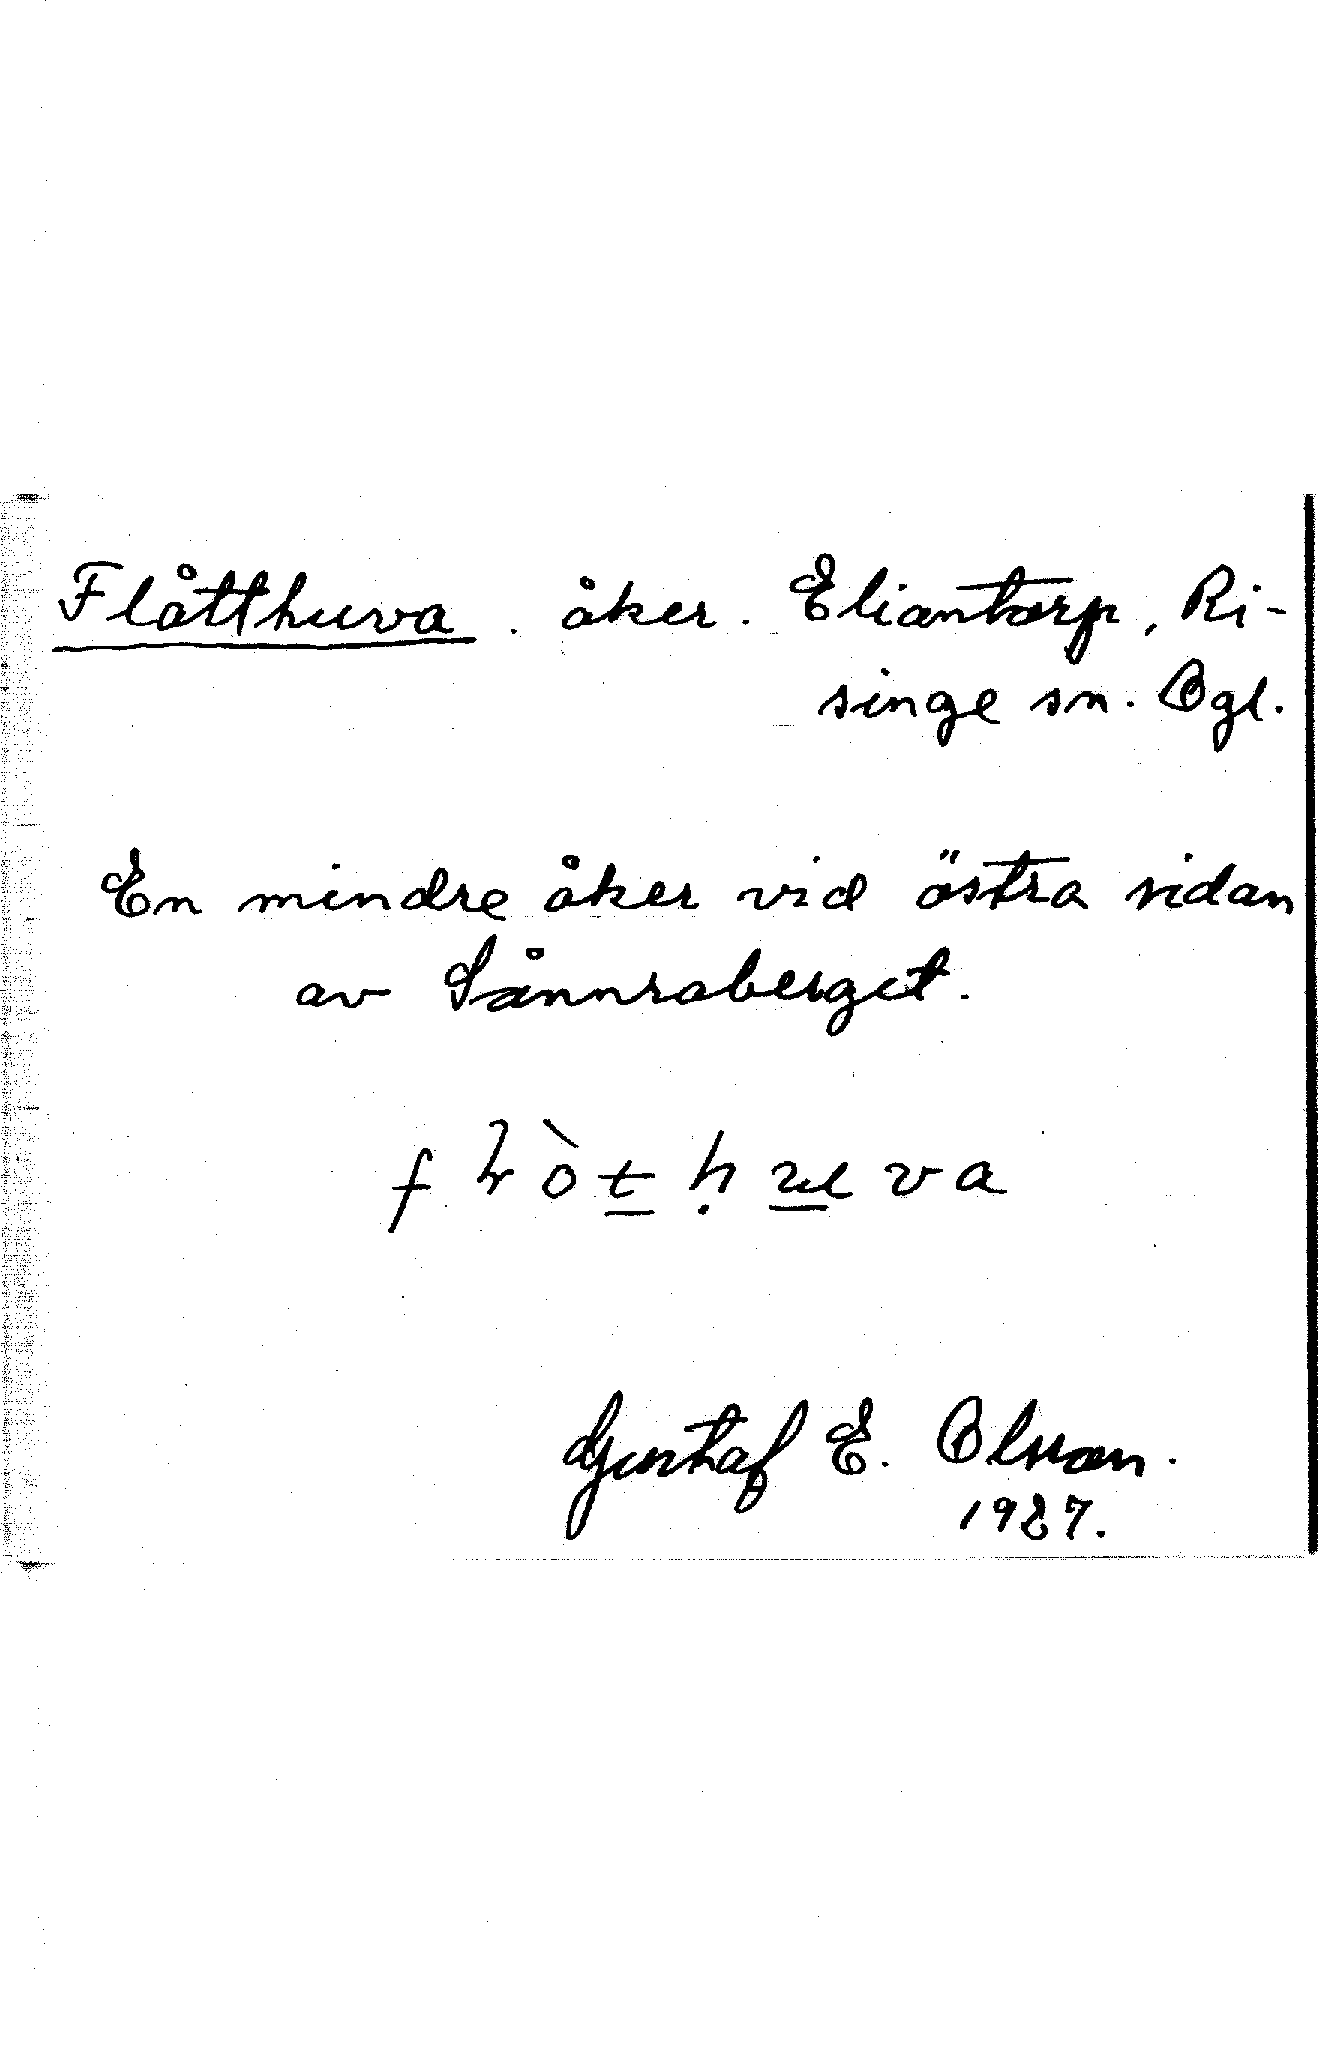 Flåtthuva. åker. Eliantorp, Ri-
singe sn. Ögl.
En mindre åker vid östra sidan
av Sånnraberget.
Gustaf E. Olsson.
1927.